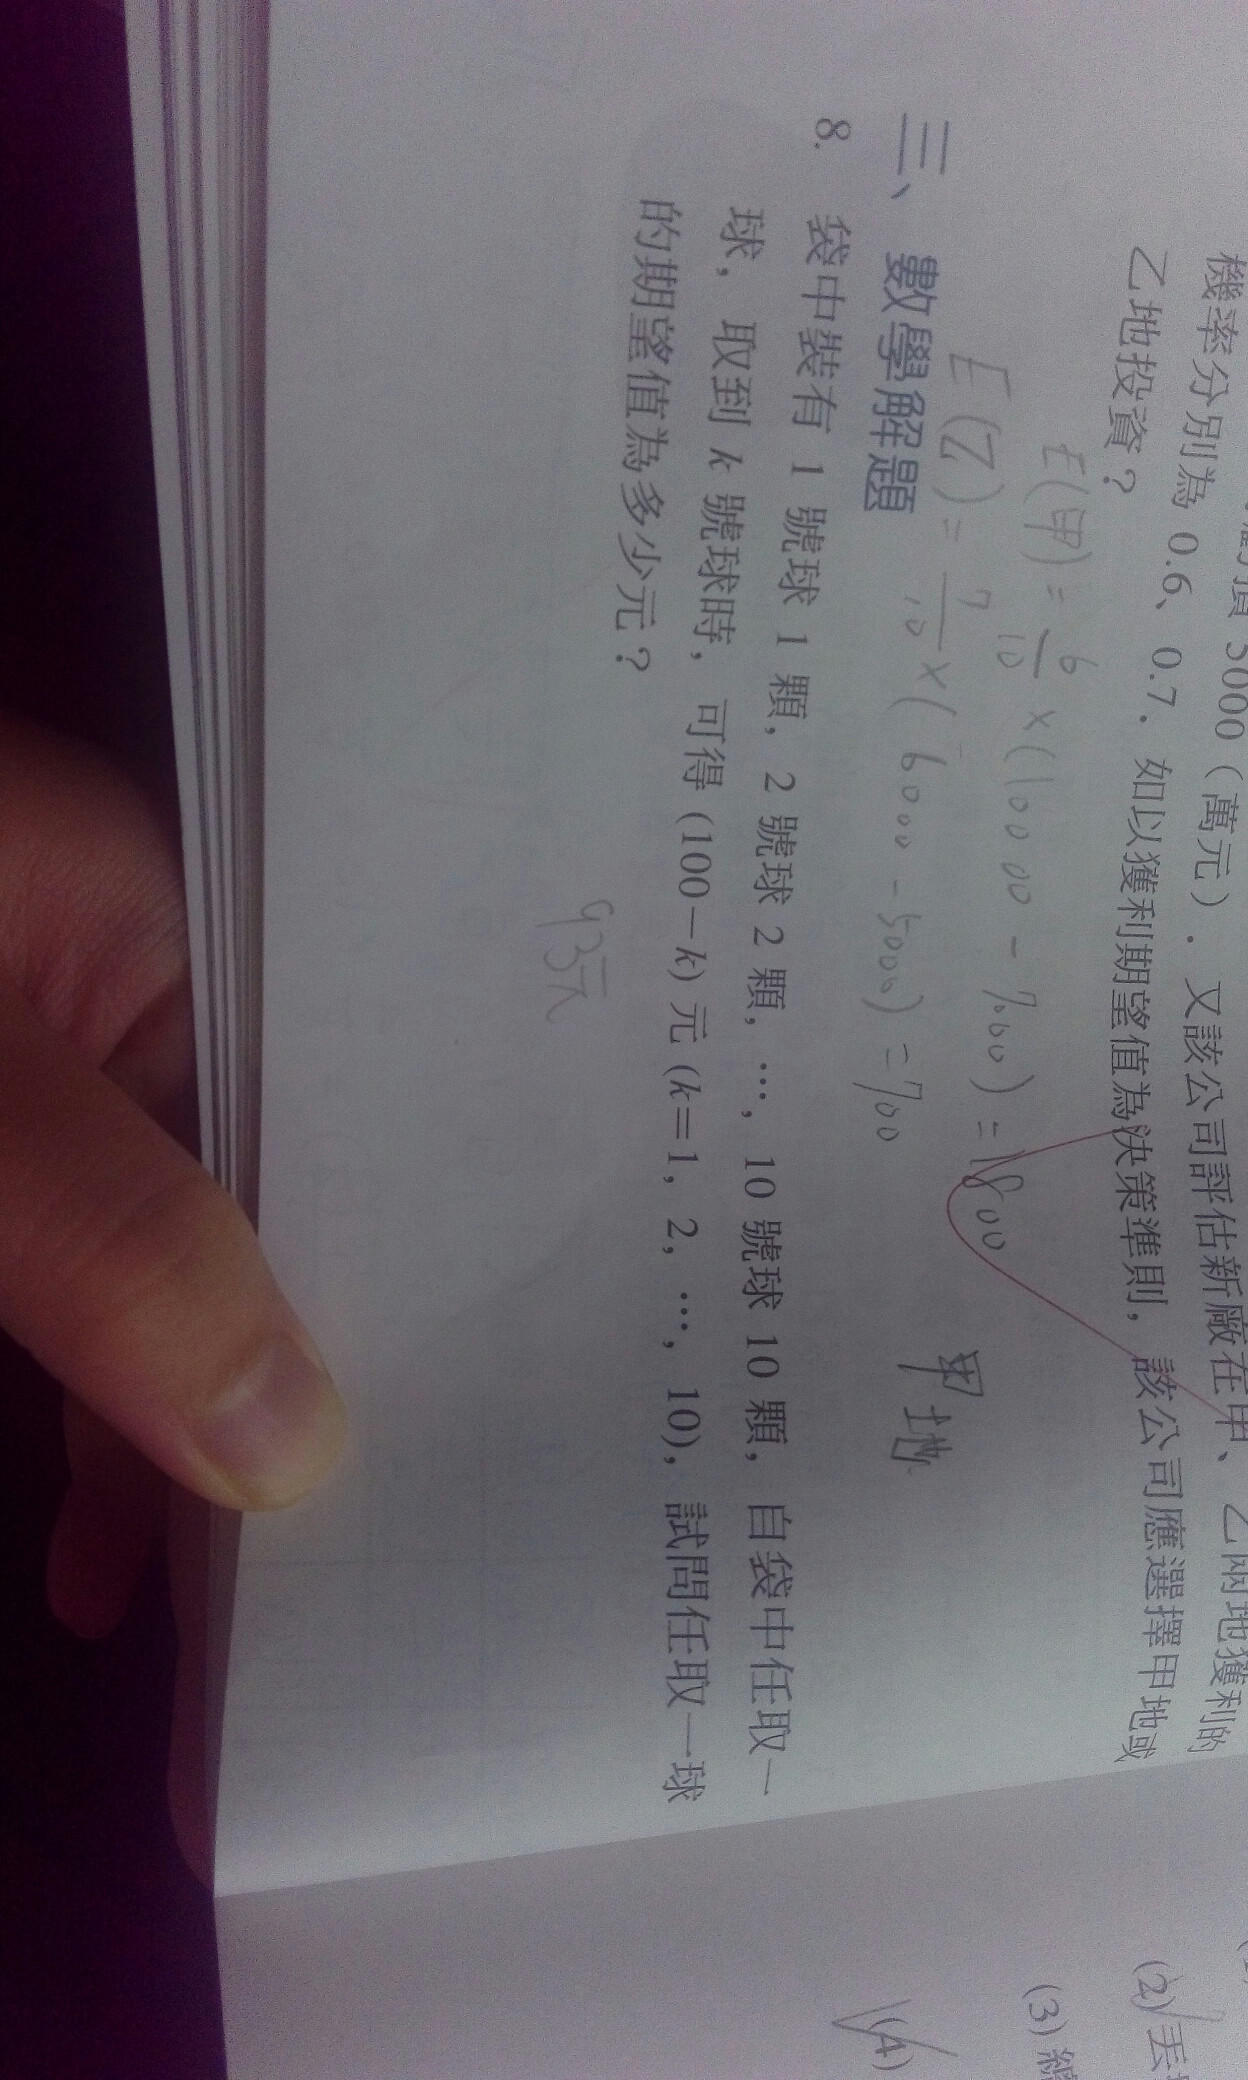 5000（萬元）. 又該公司評估新廠在甲、乙兩地獲利的
機率分別為 0.6、0.7. 如以獲利期望值為決策準則, 該公司應選擇甲地或
乙地投資?
E(甲) = 6/10 ×(10000 - 7000) = 1800
E(乙) = 7/10 ×(6000 - 5000) = 700
甲地
三、數學解題
8. 袋中裝有 1 號球 1 顆, 2 號球 2 顆, …, 10 號球 10 顆, 自袋中任取一
球, 取到 k 號球時, 可得 (100－k) 元 (k＝1, 2, …, 10), 試問任取一球
的期望值為多少元?
93元
(2) 丟
(3)
(4)